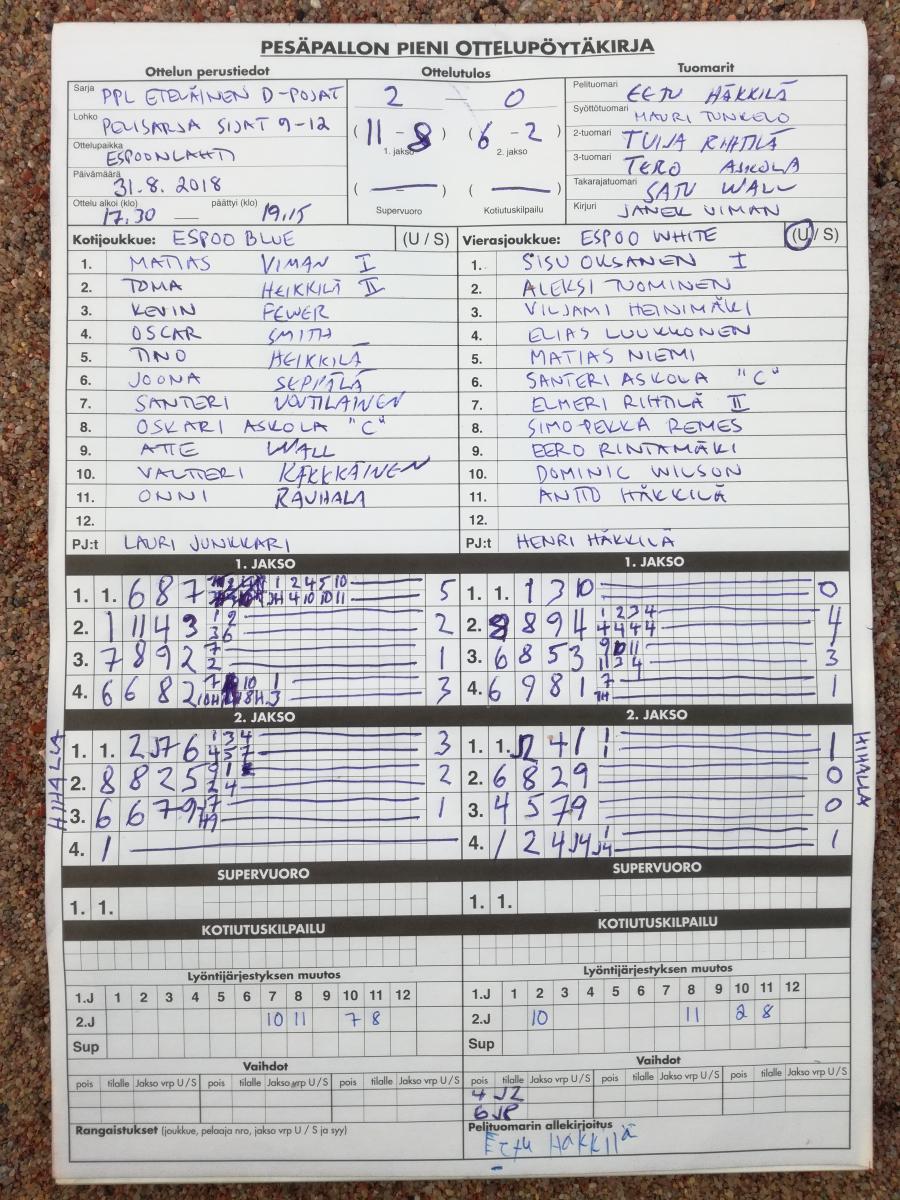 PESÄPALLON PIENI OTTELUPÖYTÄKIRJA
Ottelun perustiedot Ottelutulos Tuomarit
Sarja PPL ETELÄINEN D-POJAT
Lohko PELISARJA SIJAT 9-12
Ottelupaikka ESPOONLAHTI
Päivämäärä 31.8. 2018
Ottelu alkoi (klo) 17.30 — päättyi (klo) 19.15
2 — 0
(11 - 8) (6 - 2)
1. jakso 2. jakso
( – ) ( )
Supervuoro Kotiutuskilpailu
Pelituomari EETU HÄKKILÄ
Syöttötuomari MAURI TUNKELO
2-tuomari TUIJA RIHTILÄ
3-tuomari TERO ASKOLA
Takarajatuomari SATU WALL
Kirjuri JANEK VIMAN
Kotijoukkue: ESPOO BLUE (U / S)
1. MATIAS VIMAN I
2. TOMA HEIKKILÄ II
3. KEVIN FEWER
4. OSCAR SMITH
5. TINO HEIKKILÄ
6. JOONA SEPPÄLÄ
7. SANTERI VOUTILAINEN
8. OSKARI ASKOLA "C"
9. ATTE WALL
10. VALTTERI KÄKKÄINEN
11. ONNI RAUHALA
12.
PJ:t LAURI JUNKKARI
Vierasjoukkue: ESPOO WHITE (U / S)
1. SISU OKSANEN I
2. ALEKSI TUOMINEN
3. VILJAMI HEINIMÄKI
4. ELIAS LUUKKONEN
5. MATIAS NIEMI
6. SANTERI ASKOLA "C"
7. ELMERI RIHTILÄ II
8. SIMO PEKKA REMES
9. EERO RINTAMÄKI
10. DOMINIC WILSON
11. ANTTO HÄKKILÄ
12.
PJ:t HENRI HÄKKILÄ
1. JAKSO
1. 1. 6 8 7 1 2 4 5 10 5
2. 1 11 4 3 1 2 3 6 2
3. 7 8 9 2 7 2 1
4. 6 6 8 2 3
1. JAKSO
1. 1. 1 3 10 0
2. 8 8 9 4 1 2 3 4 4 4 4 4 4
3. 6 8 5 3 9 10 11 11 3 4 3
4. 6 9 8 1 7 1
HIHALLA
2. JAKSO
1. 1. 2 J7 6 1 3 4 4 5 7 3
2. 8 8 2 5 9 1 2 4 2
3. 6 6 7 9 1
4. 1
2. JAKSO
1. 1. J2 4 1 1 1 1
2. 6 8 2 9 0
3. 4 5 7 9 0
4. 1 2 4 J4 1 J4 1
HIHALLA
SUPERVUORO SUPERVUORO
1. 1. 1. 1.
KOTIUTUSKILPAILU KOTIUTUSKILPAILU
Lyöntijärjestyksen muutos
1.J 1 2 3 4 5 6 7 8 9 10 11 12
2.J 10 11 7 8
Sup
Lyöntijärjestyksen muutos
1.J 1 2 3 4 5 6 7 8 9 10 11 12
2.J 10 11 2 8
Sup
Vaihdot
pois tilalle Jakso vrp U / S pois tilalle Jakso vrp U / S pois tilalle Jakso vrp U / S
Vaihdot
pois tilalle Jakso vrp U / S pois tilalle Jakso vrp U / S pois tilalle Jakso vrp U / S
4 J2
6 J8
Rangaistukset (joukkue, pelaaja nro, jakso vrp U / S ja syy)
Pelituomarin allekirjoitus
Eetu Häkkilä